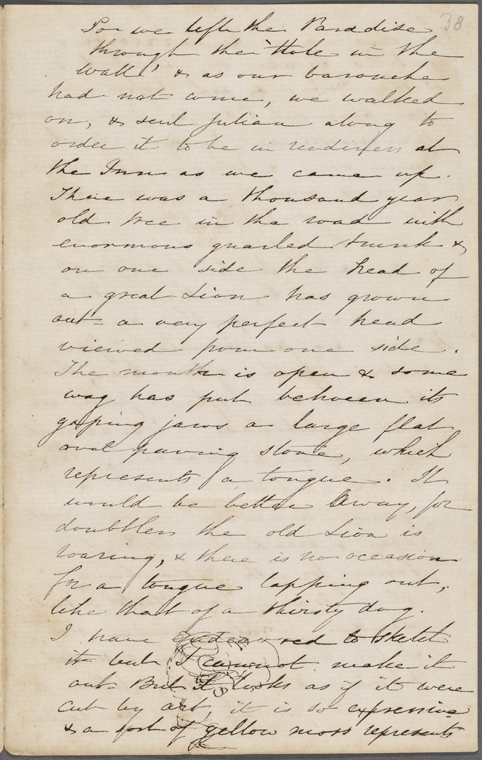 38
So we left the Paradise
through the 'Hole in the
Wall' & as our barouche
had not come, we walked
on, & sent Julian along to
order it to be in readiness at
the Inn as we came up.
There was a thousand year
old tree in the road with
enormous gnarled trunk &
on one side the head of
a great Lion has grown
out – a very perfect head
viewed from one side.
The mouth is open & some
wag has put between its
gaping jaws a large flat
oval paving stone, which
represents a tongue. It
would be better away, for
doubtless the old Lion is
roaring, & there is no occasion
for a tongue lapping out,
like that of a thirsty dog.
I have endeavored to sketch
it but I cannot make it
out. But it looks as if it were
cut by art, it is so expressive
& a sort of yellow moss represents